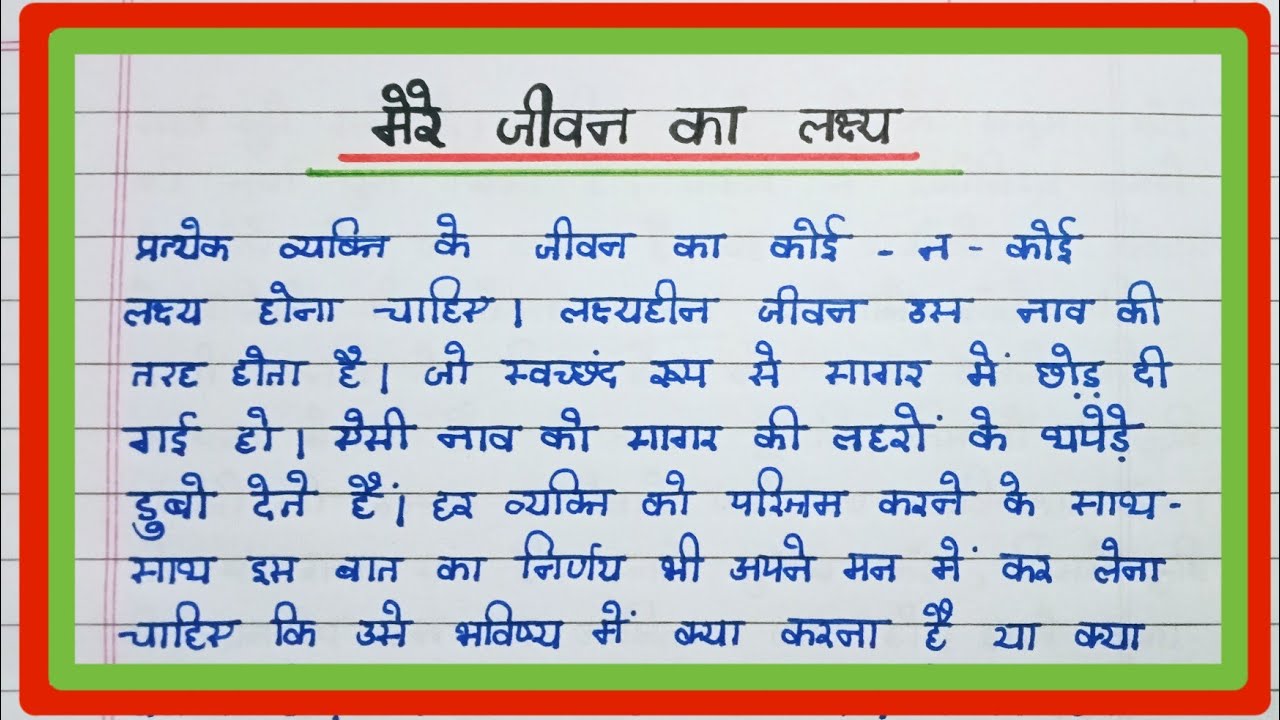 मेरे जीवन का लक्ष्य
प्रत्येक व्यक्ति के जीवन का कोई - न - कोई
लक्ष्य होना चाहिए। लक्ष्यहीन जीवन उस नाव की
तरह होता है। जो स्वच्छंद रूप से सागर में छोड़ दी
गई हो। ऐसी नाव को सागर की लहरों के थपेड़े
डुबो देते हैं। हर व्यक्ति को परिश्रम करने के साथ-
साथ इस बात का निर्णय भी अपने मन में कर लेना
चाहिए कि उसे भविष्य में क्या करना है या क्या